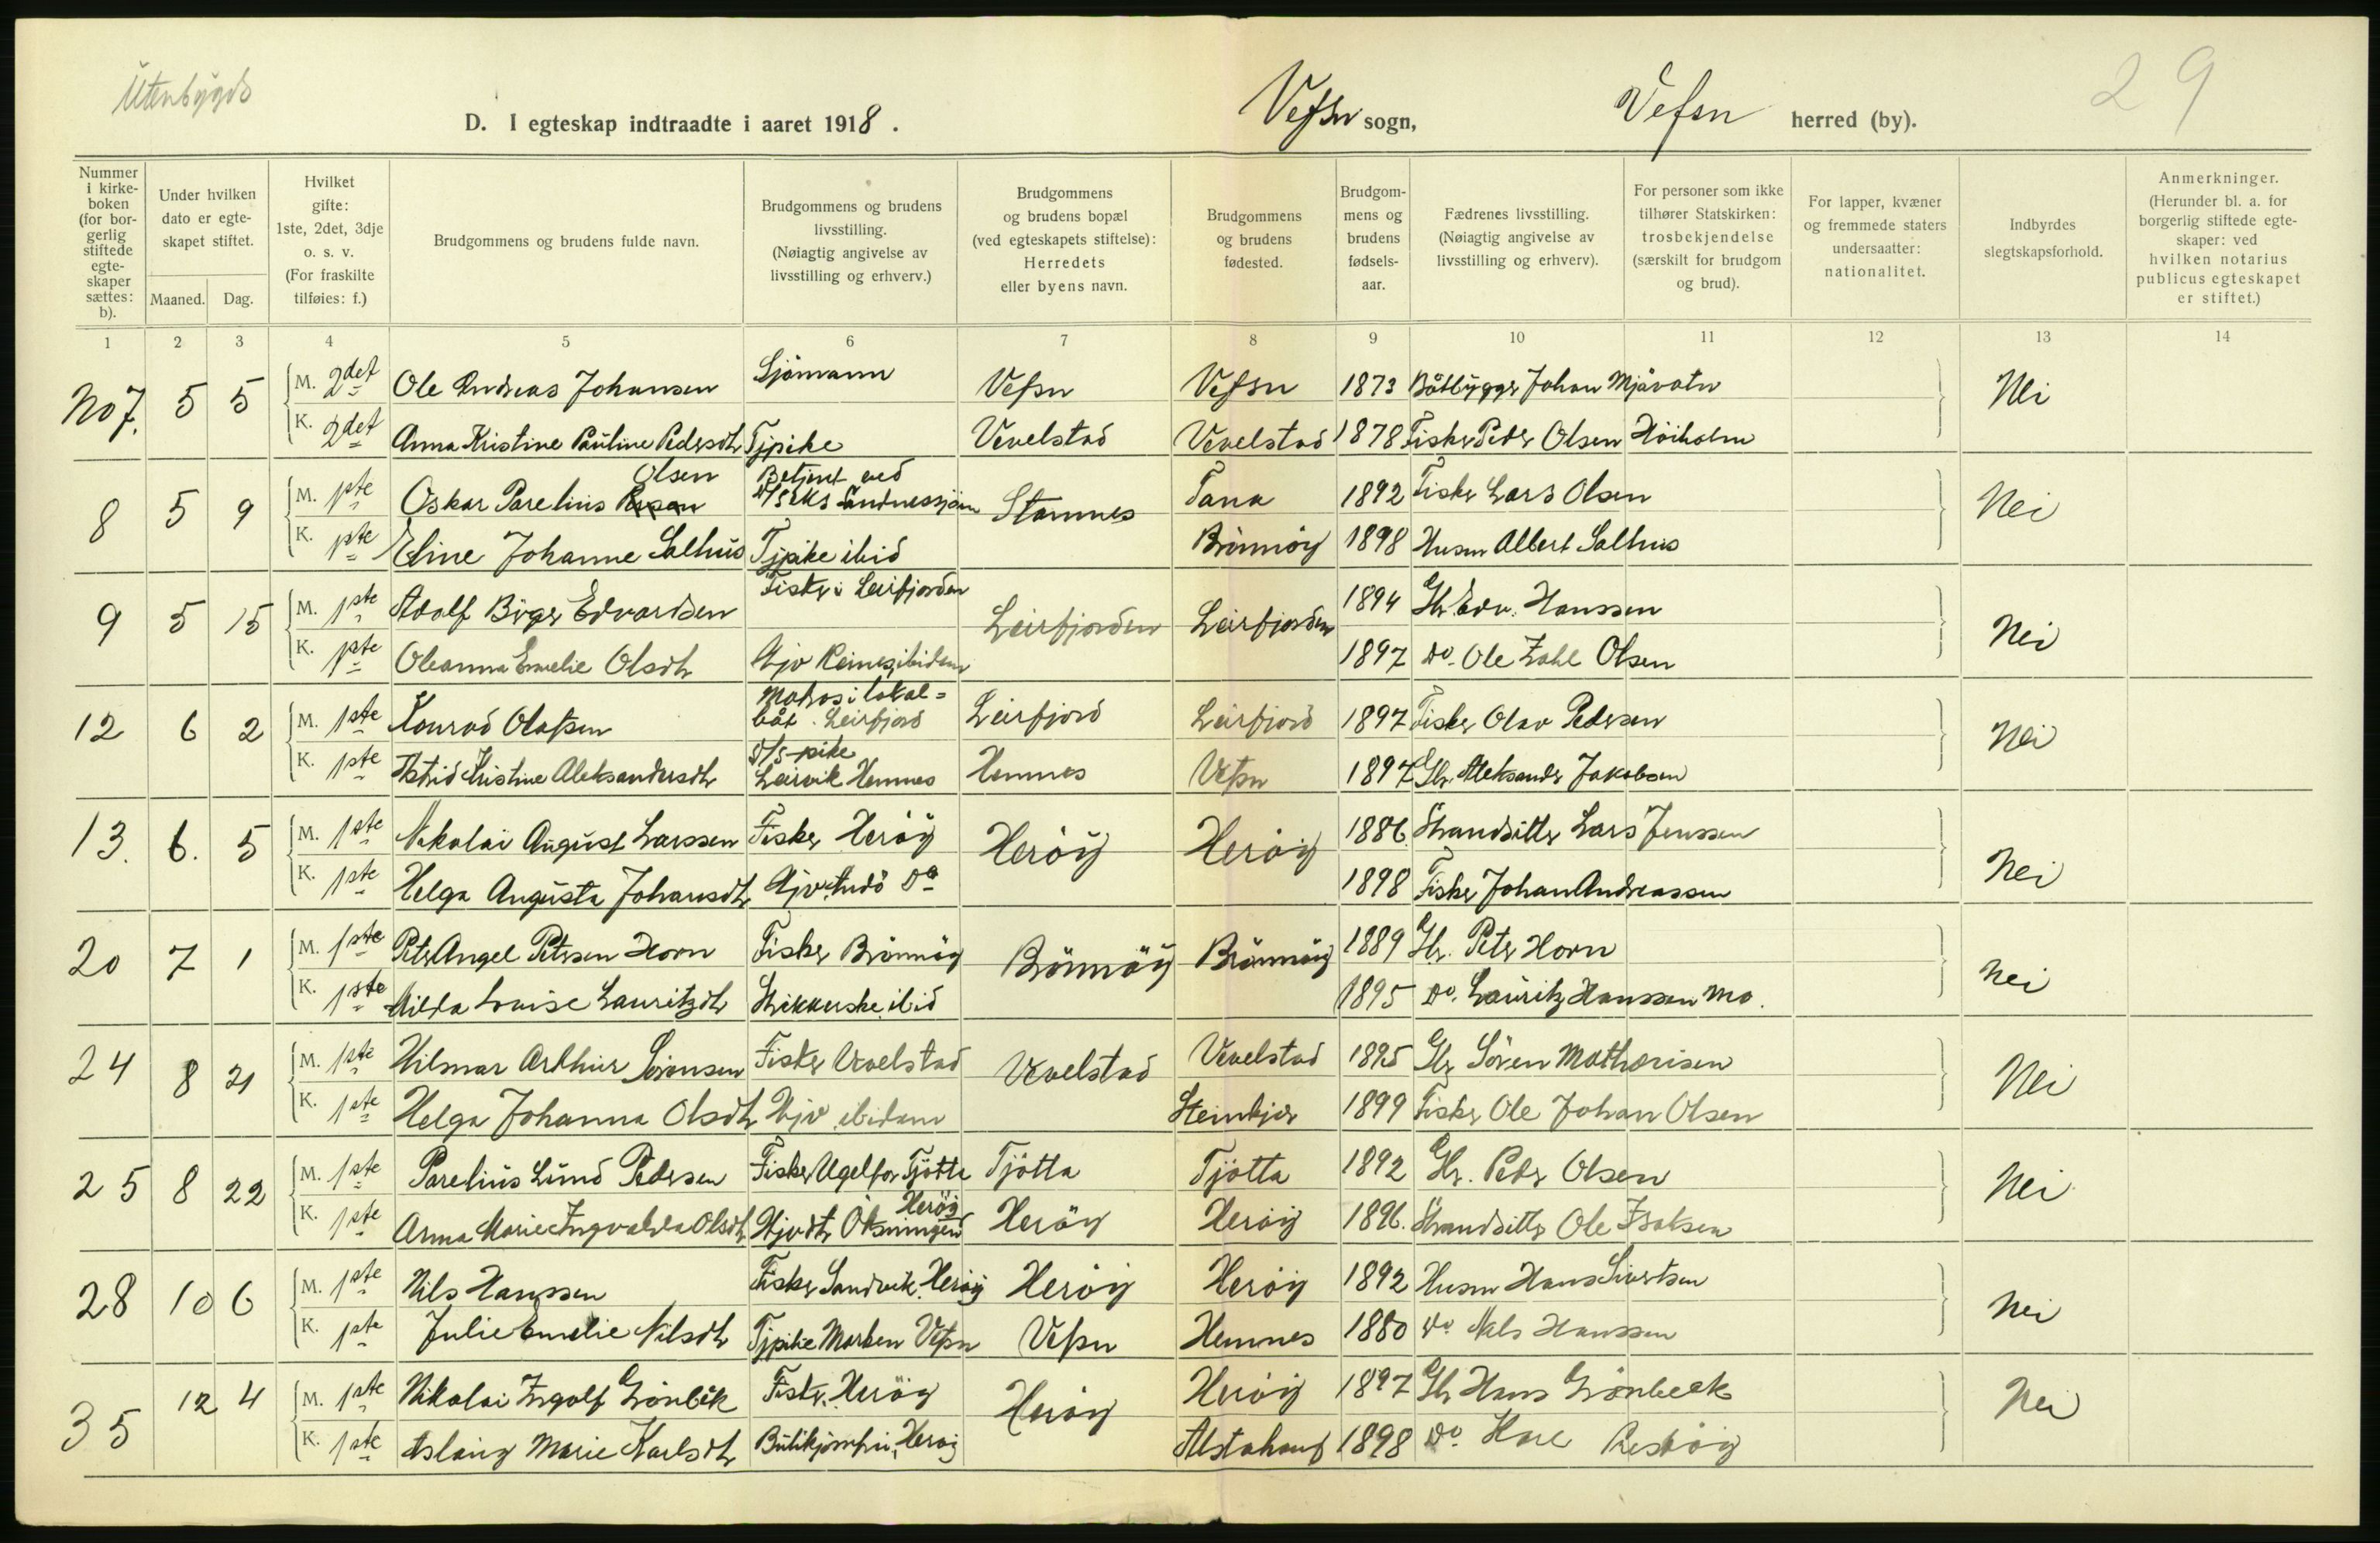 Utenbygds
29
D. I egteskap indtraadte i aaret 1918. Vefsn sogn, Vefsn herred (by).
Nummer i kirke-boken (for bor-gerlig stiftede egte-skaper sættes: b).
Under hvilken dato er egte-skapet stiftet.
Maaned. Dag.
Hvilket gifte: 1ste, 2det, 3dje o. s. v. (For fraskilte tilføies: f.)
Brudgommens og brudens fulde navn.
Brudgommens og brudens livsstilling. (Nøiagtig angivelse av livsstilling og erhverv.)
Brudgommens og brudens bopæl (ved egteskapets stiftelse): Herredets eller byens navn.
Brudgommens og brudens fødested.
Brudgom-mens og brudens fødsels-aar.
Fædrenes livsstilling. (Nøiagtig angivelse av livsstilling og erhverv).
For personer som ikke tilhører Statskirken: trosbekjendelse (særskilt for brudgom og brud).
For lapper, kvæner og fremmede staters undersaatter: nationalitet.
Indbyrdes slegtskapsforhold.
Anmerkninger. (Herunder bl. a. for borgerlig stiftede egte-skaper: ved hvilken notarius publicus egteskapet er stiftet.)
1 2 3 4 5 6 7 8 9 10 11 12 13 14
No 7. 5 5 M. 2det Ole Andreas Johansen Sjömann Vefsn Vefsn 1873 Båtbygger Johan Mjåvatn Nei
K. 2det Anna Kristine Pauline Pedersdtr Tjpike Vevelstad Vevelstad 1878 Fisker Peder Olsen Höiholm
8 5 9 M. 1ste Oskar Parelius Olsen Betjent ved Sandnessjöen Stamnes Tana 1892 Fisker Lars Olsen Nei
K. 1ste Eline Johanne Salhus Tjpike ibid Brönnöy 1898 Husm Albert Salhus
9 5 15 M. 1ste Adolf Birger Edvardsen Fisker i Leirfjorden Leirfjorden Leirfjorden 1894 Gbr. Edv. Hanssen Nei
K. 1ste Oleanna Emelie Olsdtr Hjv Reines ibidem 1897 Do. Ole Zahl Olsen
12 6 2 M. 1ste Konrad Olafsen Matros i lokal=båt. Leirfjord Leirfjord Leirfjord 1897 Fisker Olav Pedersen Nei
K. 1ste Astrid Kristine Aleksandersdtr D/S-pike Leirvik Hemnes Hemnes Vefsn 1897 Gbr. Aleksander Jakobsen
13. 6. 5 M. 1ste Nikolai August Larssen Fisker Heröy Heröy Heröy 1886. Strandsitter Lars Jenssen Nei
K. 1ste Helga Augusta Johansdtr Hjv. Do 1898 Fisker Johan Andreassen
20 7 1 M. 1ste Peter Angel Petersen Horn Fisker Brönnöy Brönnöy Brönnöy 1889 Gbr. Peter Horn Nei
K. 1ste Hilda Louise Lauritzdtr Strikkerske ibid 1895 Do. Lauritz Hanssen Mo.
24 8 21 M. 1ste Hilmar Arthur Sörensen Fisker Vevelstad Vevelstad Vevelstad 1895 Gbr Sören Mathæisen Nei
K. 1ste Helga Johanna Olsdtr Hjv ibidem Steinkjer 1899 Fisker Ole Johan Olsen
25 8 22 M. 1ste Parelius Lund Pedersen Fisker Tjötta Tjötta Tjötta 1892 Gbr. Peder Olsen Nei
K. 1ste Anna Marie Ingvalda Olsdtr Hjvdtr Öksningen Heröy Heröy Heröy 1896. Strandsitter Ole Isaksen
28 10 6 M. 1ste Nils Hanssen Fisker Sandvik. Heröy Heröy Heröy 1892 Husm Hans Sivertsen Nei
K. 1ste Julie Emelie Nilsdtr Tjpike Marken Vefsn Vefsn Hemnes 1880 Do Nils Hanssen
35 12 4 M. 1ste Nikolai Ingolf Grönbek Fisker. Heröy Heröy Heröy 1897 Gbr Hans Grönbeck Nei
K. 1ste Aslaug Marie Karlsdtr Butikjomfru, Heröy Alstahaug 1898 Do.